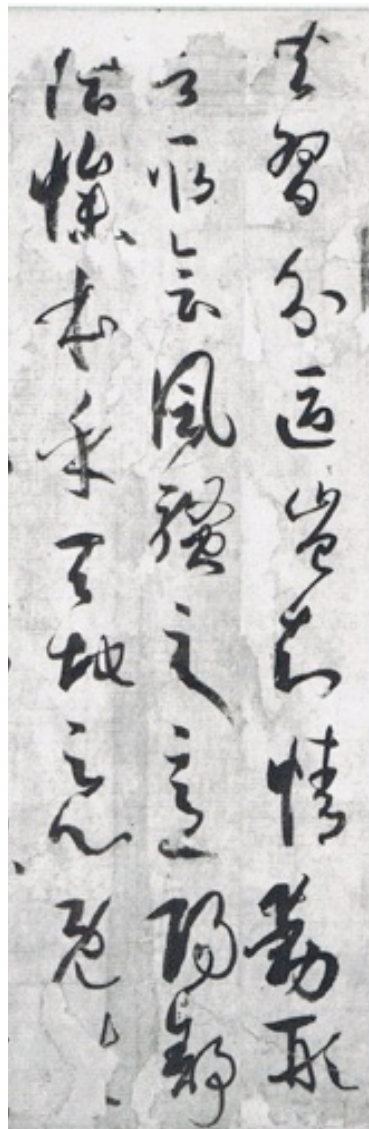 共習分區豈知情動形
言取會風騷之意陽舒
陰慘本乎天地之心既